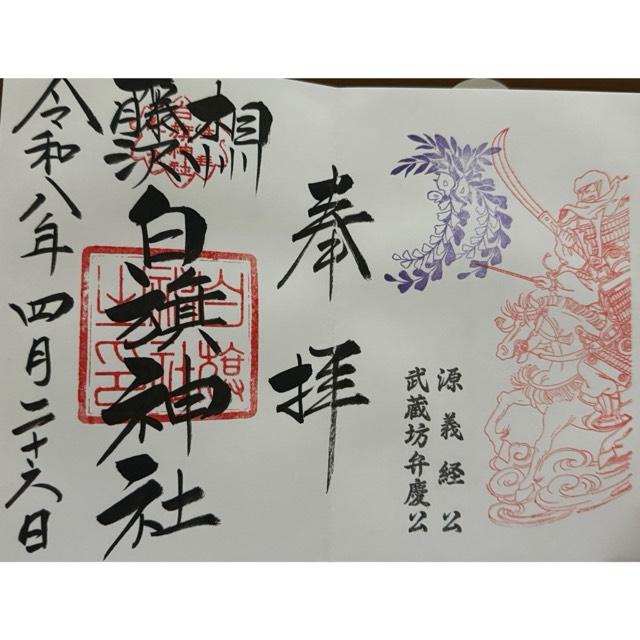 源義経公
武蔵坊弁慶公
奉拝
相州
藤沢
白旗神社
白旗神社之印
令和八年四月二十六日